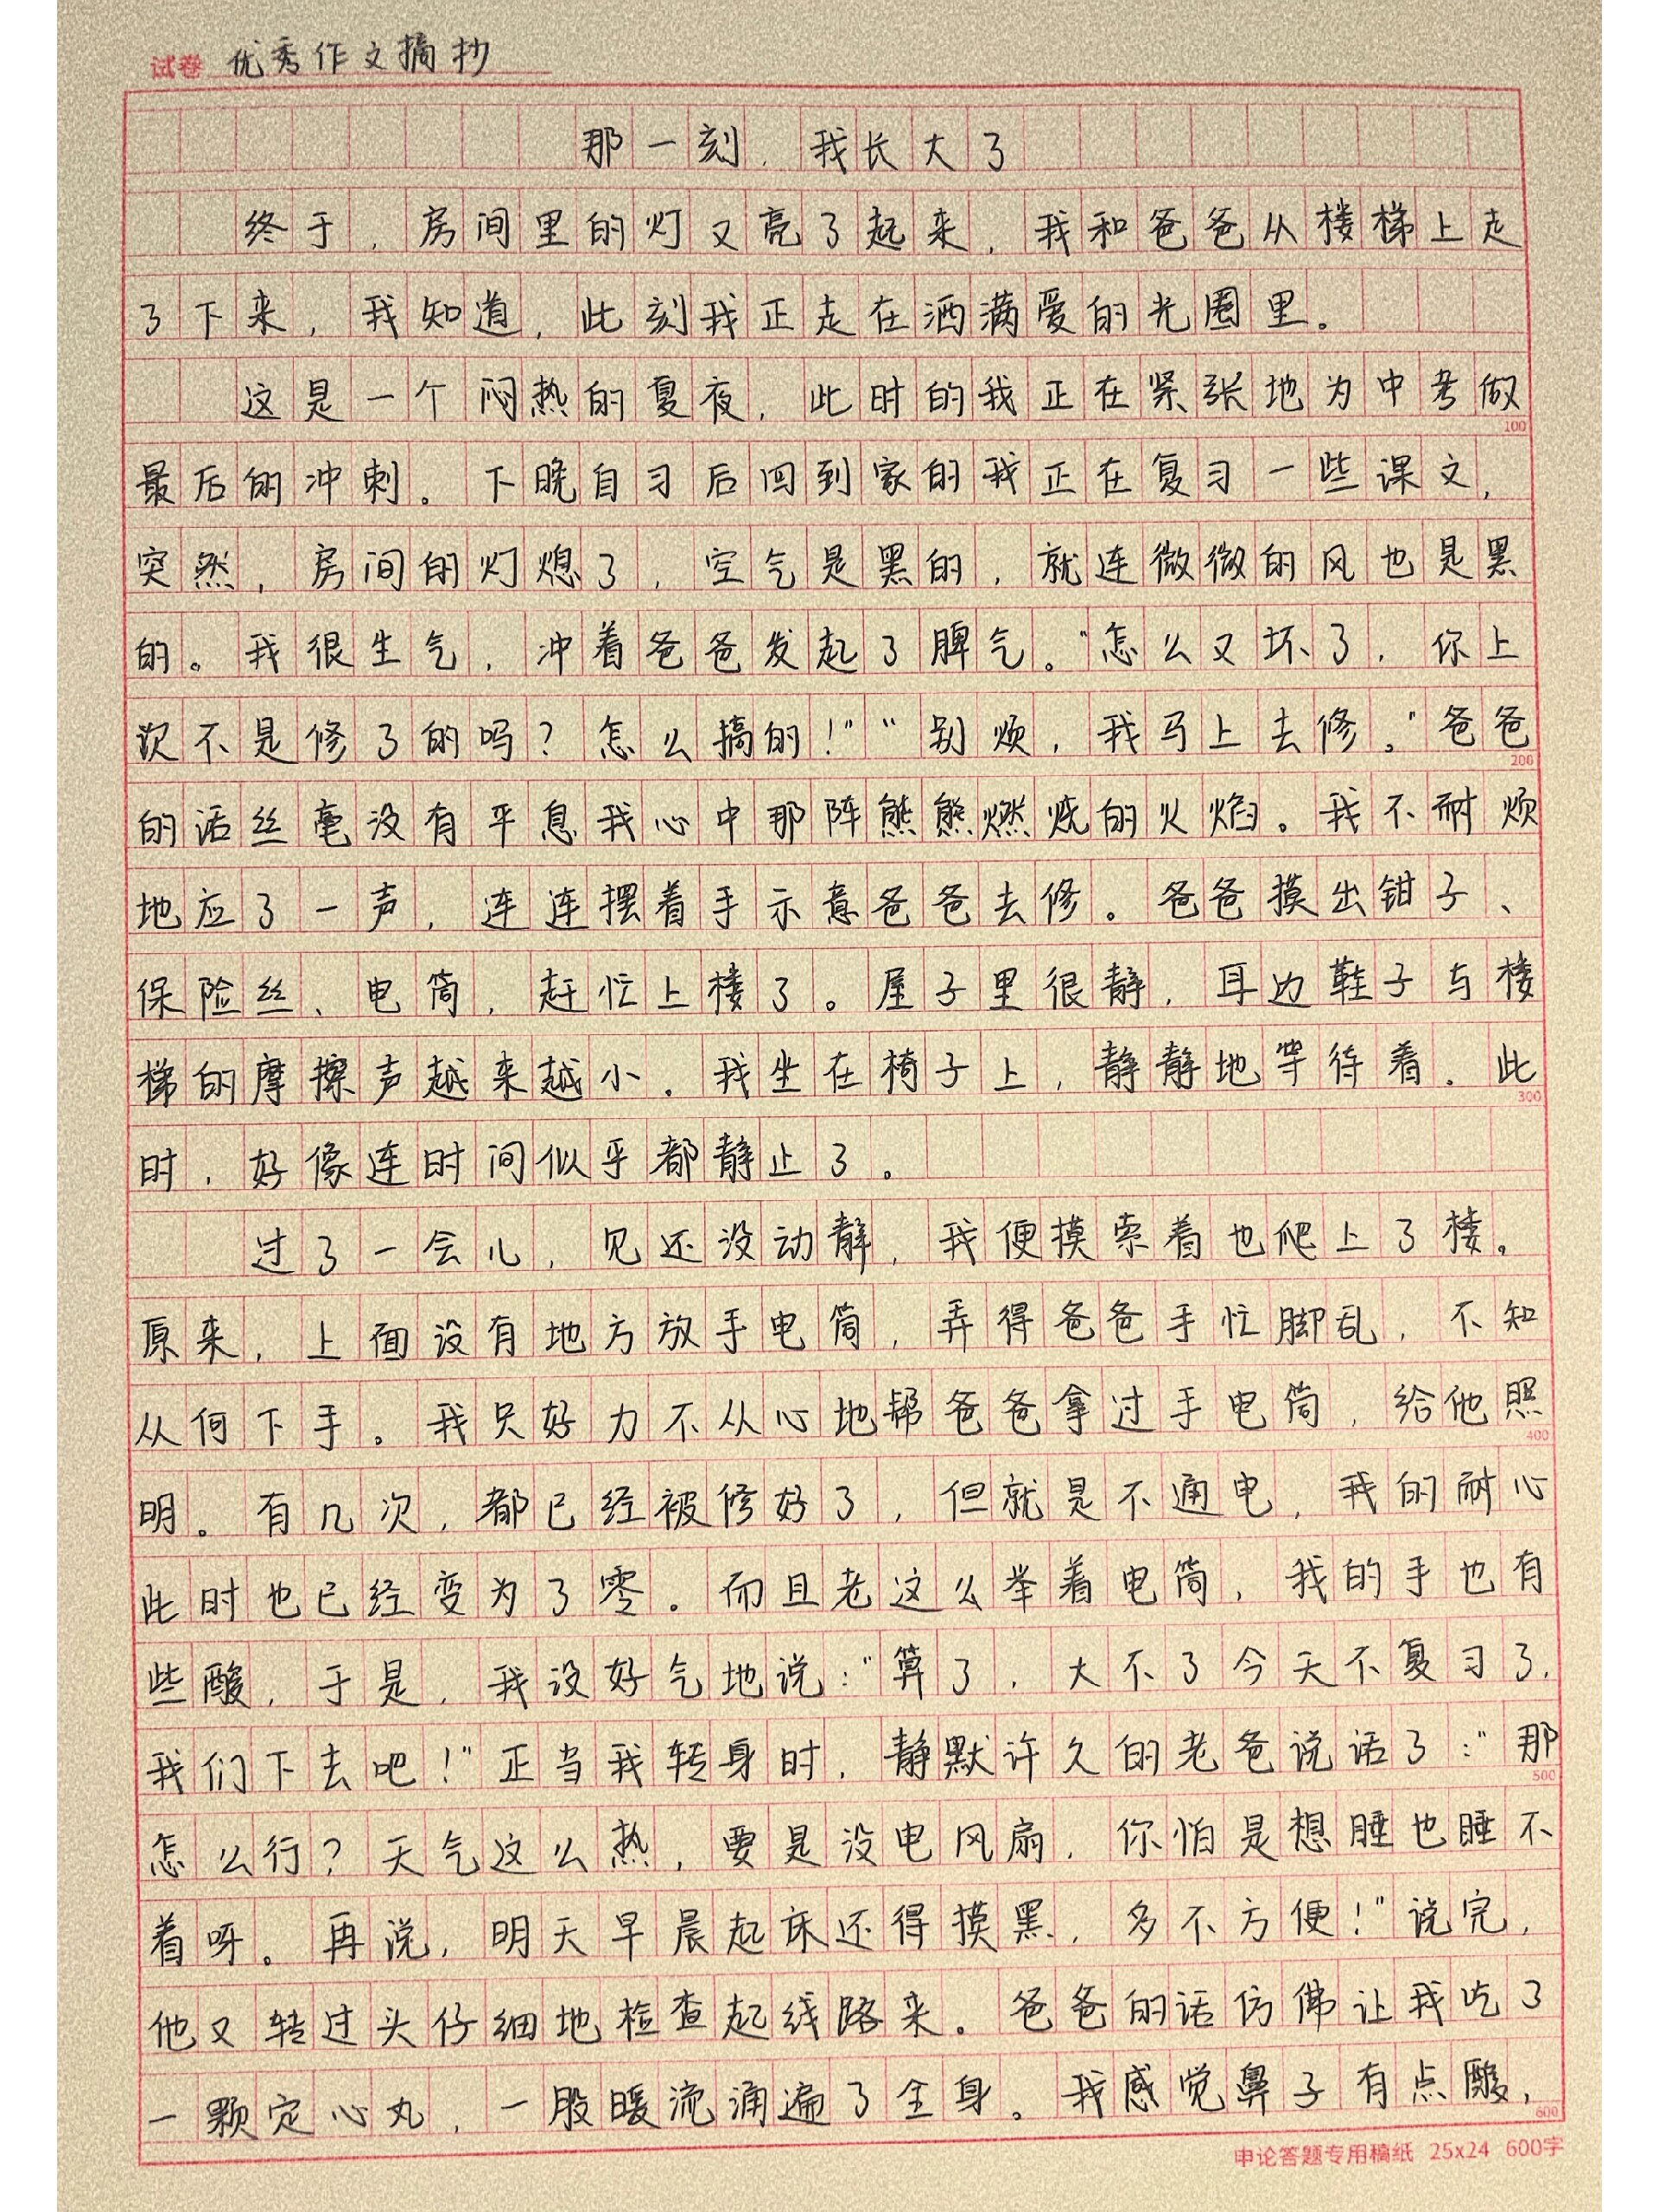 试卷 优秀作文摘抄
那一刻，我长大了
终于，房间里的灯又亮了起来，我和爸爸从楼梯上走
了下来，我知道，此刻我正走在洒满爱的光圈里。
这是一个闷热的夏夜，此时的我正在紧张地为中考做
100
最后的冲刺。下晚自习后回到家的我正在复习一些课文，
突然，房间的灯熄了，空气是黑的，就连微微的风也是黑
的。我很生气，冲着爸爸发起了脾气。“怎么又坏了，你上
次不是修了的吗？怎么搞的！”“别烦，我马上去修。”爸爸
200
的话丝毫没有平息我心中那阵熊熊燃烧的火焰。我不耐烦
地应了一声，连连摆着手示意爸爸去修。爸爸摸出钳子、
保险丝、电筒，赶忙上楼了。屋子里很静，耳边鞋子与楼
梯的摩擦声越来越小。我坐在椅子上，静静地等待着．此
300
时，好像连时间似乎都静止了。
过了一会儿，见还没动静，我便摸索着也爬上了楼。
原来，上面没有地方放手电筒，弄得爸爸手忙脚乱，不知
从何下手。我只好力不从心地帮爸爸拿过手电筒，给他照
400
明。有几次，都已经被修好了，但就是不通电，我的耐心
此时也已经变为了零。而且老这么举着电筒，我的手也有
些酸，于是，我没好气地说：“算了，大不了今天不复习了，
我们下去吧！”正当我转身时，静默许久的老爸说话了：“那
500
怎么行？天气这么热，要是没电风扇，你怕是想睡也睡不
着呀。再说，明天早晨起床还得摸黑，多不方便！”说完，
他又转过头仔细地检查起线路来。爸爸的话仿佛让我吃了
一颗定心丸，一股暖流涌遍了全身。我感觉鼻子有点酸，
600
申论答题专用稿纸 25x24 600字